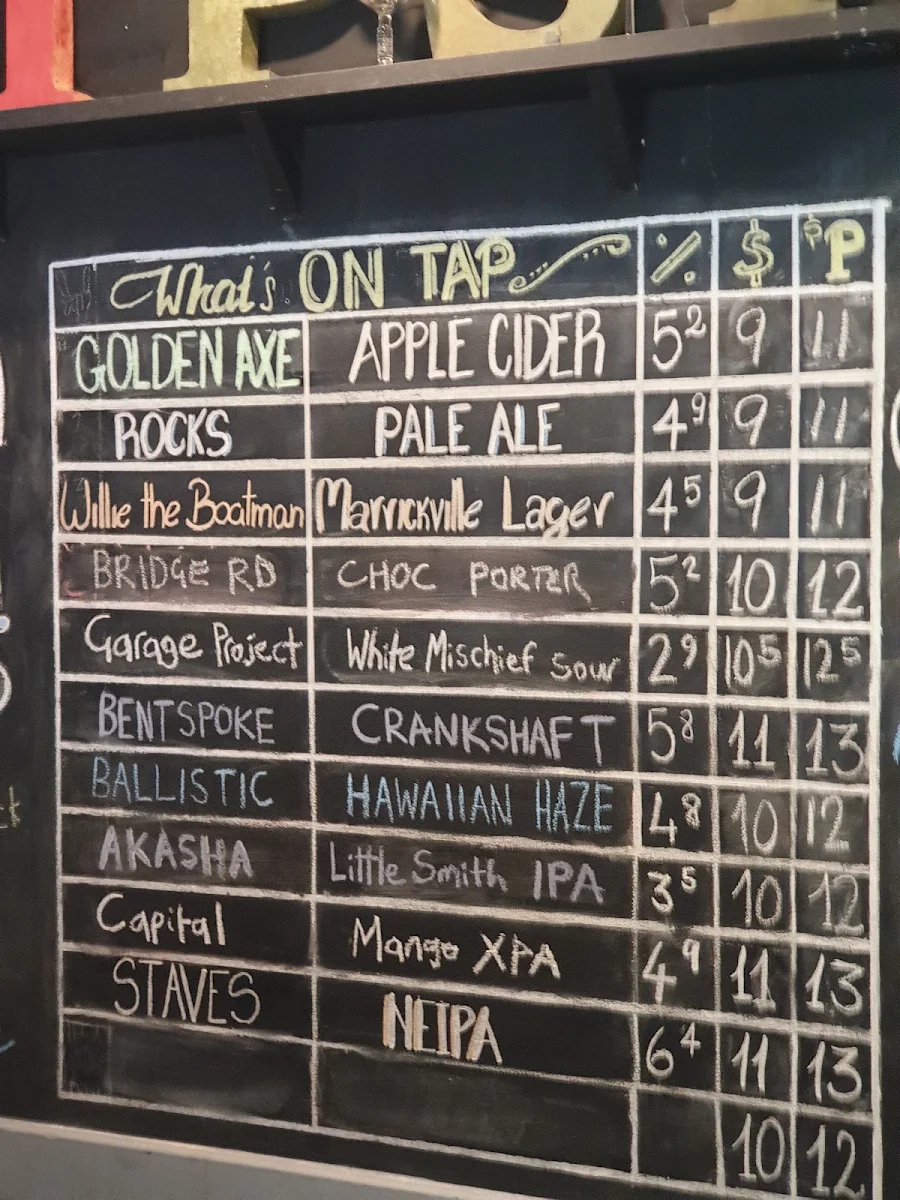 What's ON TAP % $ $P
GOLDEN AXE APPLE CIDER 5² 9 11
ROCKS PALE ALE 4⁹ 9 11
Willie the Boatman Marrickville Lager 4⁵ 9 11
BRIDGE RD CHOC PORTER 5² 10 12
Garage Project White Mischief Sour 2⁹ 10⁵ 12⁵
BENTSPOKE CRANKSHAFT 5⁸ 11 13
BALLISTIC HAWAIIAN HAZE 4⁸ 10 12
AKASHA Little Smith IPA 3⁵ 10 12
Capital Mango XPA 4⁹ 11 13
STAVES NEIPA 6⁴ 11 13
10 12